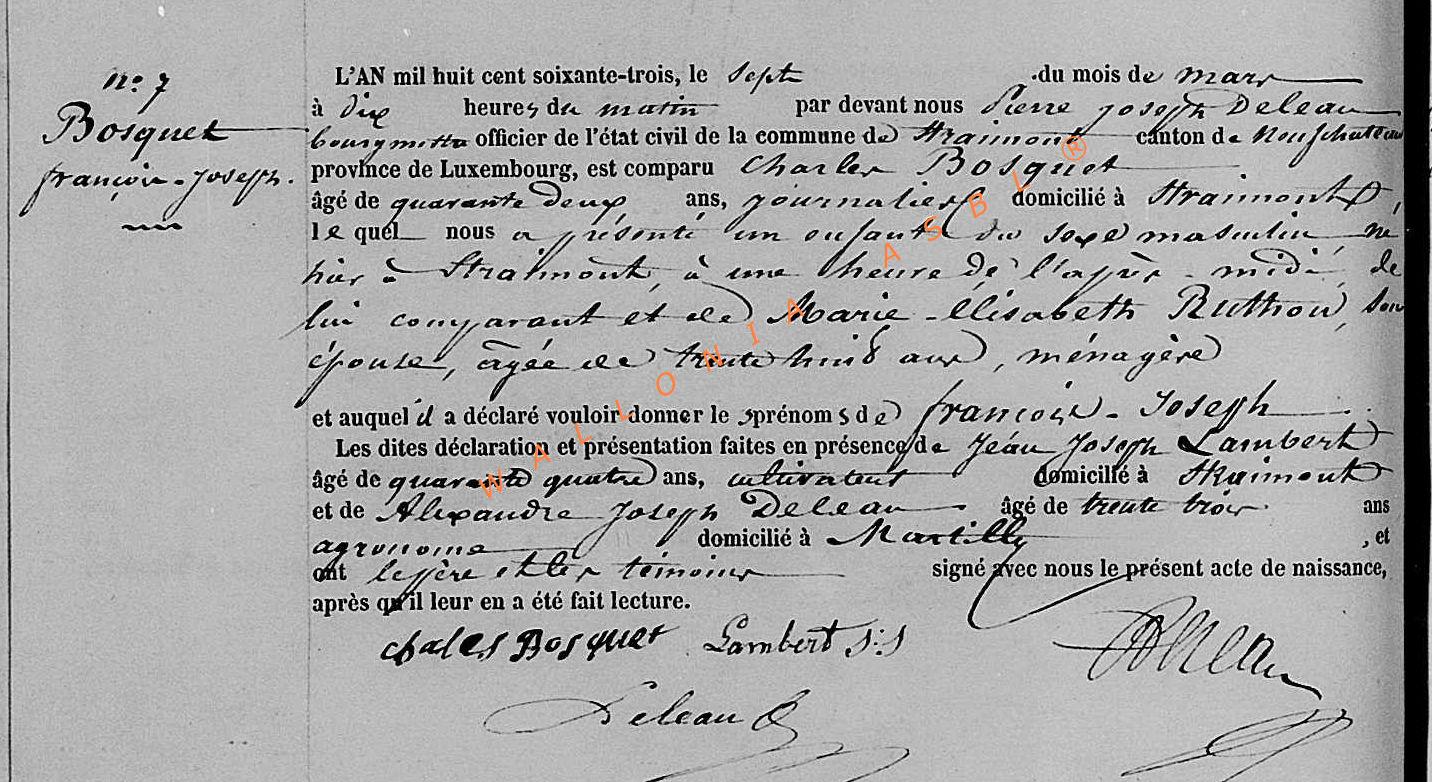 n.o 7
Bosquet
françois-Joseph.
L'AN mil huit cent soixante-trois, le Sept du mois de mars
à Dix heures du matin par devant nous Pierre Joseph Deleau
bourgmestre officier de l'état civil de la commune de Straimont canton de Neufchateau
province de Luxembourg, est comparu Charles Bosquet
âgé de quarante deux ans, journalier domicilié à Straimont,
le quel nous a présenté un enfant du sexe masculin, né
hier à Straimont, à une heure de l'après-midi, de
lui comparant et de Marie-Elisabeth Ruthon, son
épouse, âgée de trente huit ans, ménagère
et auquel il a déclaré vouloir donner les prénoms de françois-Joseph
Les dites déclaration et présentation faites en présence de Jean Joseph Lambert
âgé de quarante quatre ans, cultivateur domicilié à Straimont
et de Alexandre Joseph Deleau âgé de trente trois ans
agronome domicilié à Martilly, et
ont le père et les témoins signé avec nous le présent acte de naissance,
après qu'il leur en a été fait lecture.
chales Bosquet Lambert J:J Deleau
Deleau
WALLONIA ASBL ®